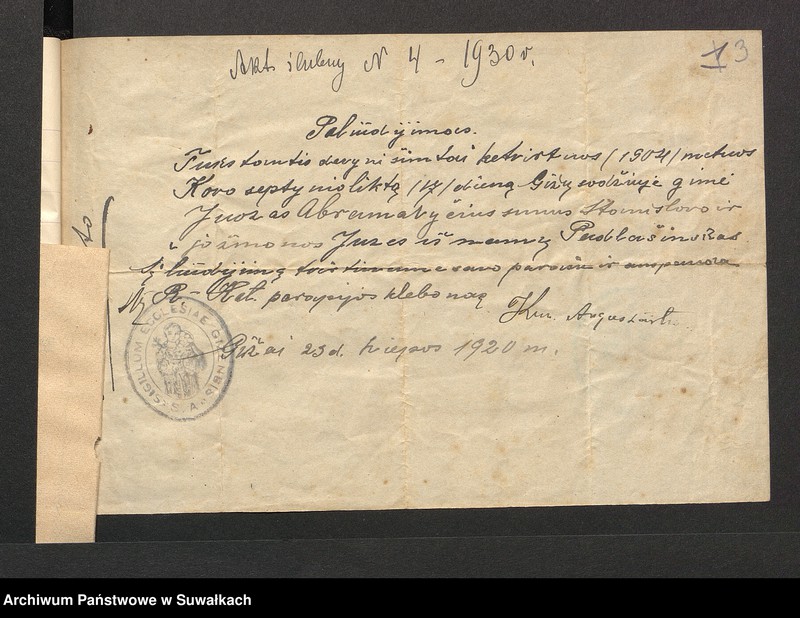 Akt ślubny N 4 - 1930 r.
1 3
Paliudijimas.
Tukstantis devyni šimtai ketvirtuos /1904/ metuos
Kovo septynioliktą /17/ dieną Gižų sodžiuje gimė
Juozas Abramavyčius sunus Stanislovo ir
jo žmonos Juzes iš namų Padlašinskas
šį liudijimą tvirtiname savo parašu ir
Už R- Kat. parapijos kleboną
Kun.
Gižai 23 d. liepos 1920 m.
SIGILLUM ECCLESIAE
Archiwum Państwowe w Suwałkach